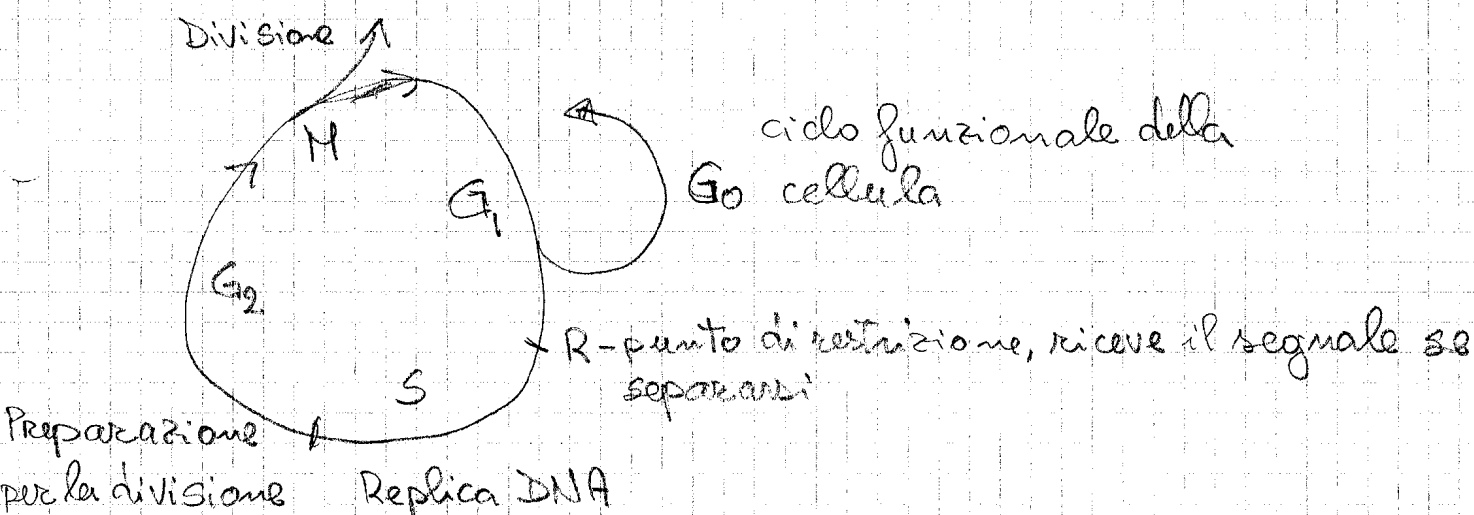 Divisione
M
ciclo funzionale della
G₁
G₀ cellula
G₂
R-punto di restrizione, riceve il segnale se
separarsi
S
Preparazione
per la divisione
Replica DNA